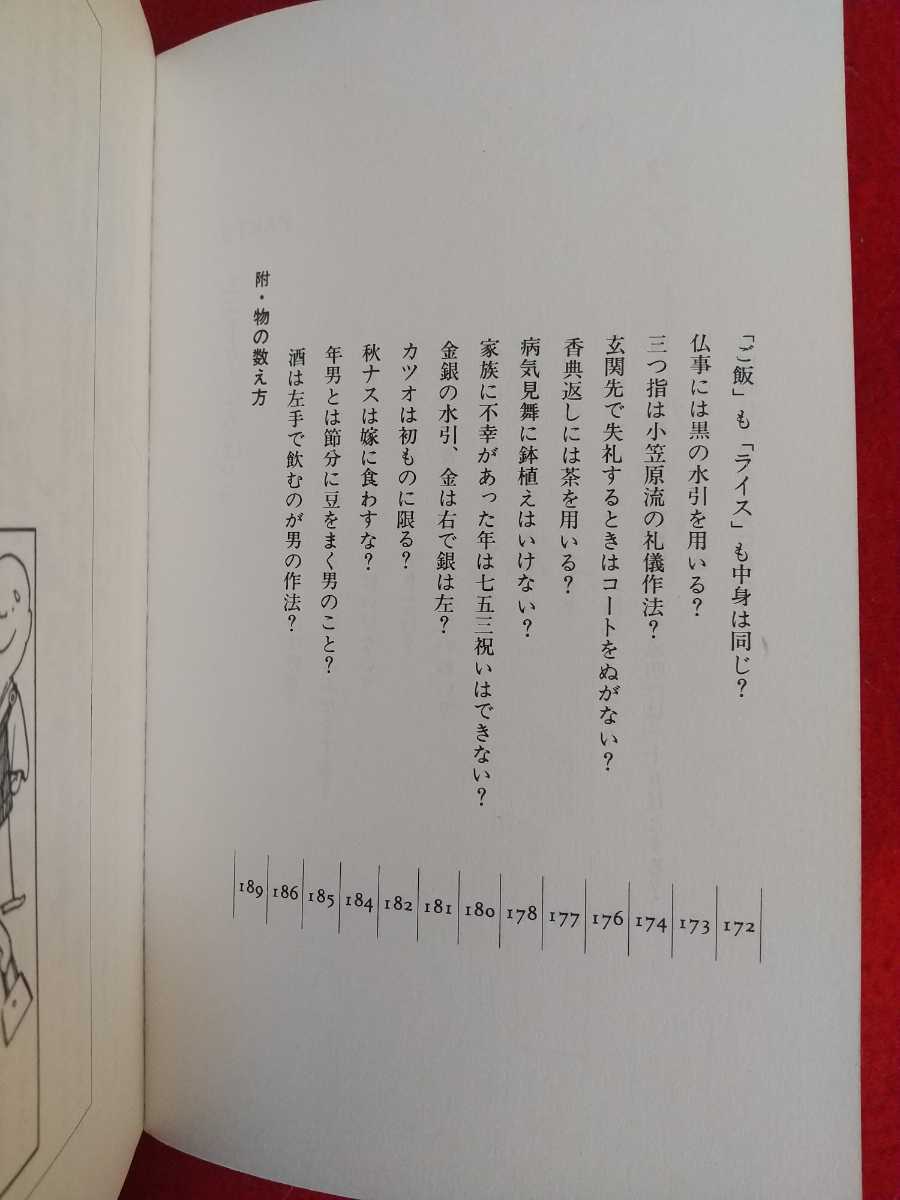 「ご飯」も「ライス」も中身は同じ？ 172
仏事には黒の水引を用いる？ 173
三つ指は小笠原流の礼儀作法？ 174
玄関先で失礼するときはコートをぬがない？ 176
香典返しには茶を用いる？ 177
病気見舞に鉢植えはいけない？ 178
家族に不幸があった年は七五三祝いはできない？ 180
金銀の水引、金は右で銀は左？ 181
カツオは初ものに限る？ 182
秋ナスは嫁に食わすな？ 184
年男とは節分に豆をまく男のこと？ 185
酒は左手で飲むのが男の作法？ 186
附・物の数え方 189